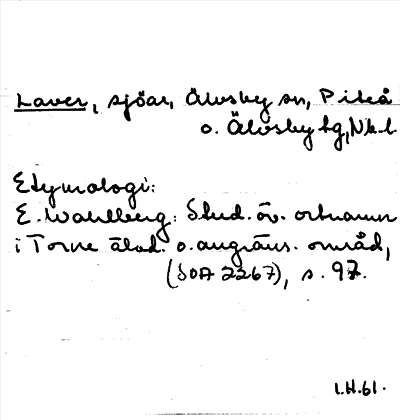 Laver, sjöar, Älvsby sn, Piteå
o. Älvsby tg, Nbl.
Etymologi:
E. Wahlberg: Stud. öv. ortnamn
i Torne älvd. o. angräns. områd,
(SOA 2267), s. 97.
1.H.61.